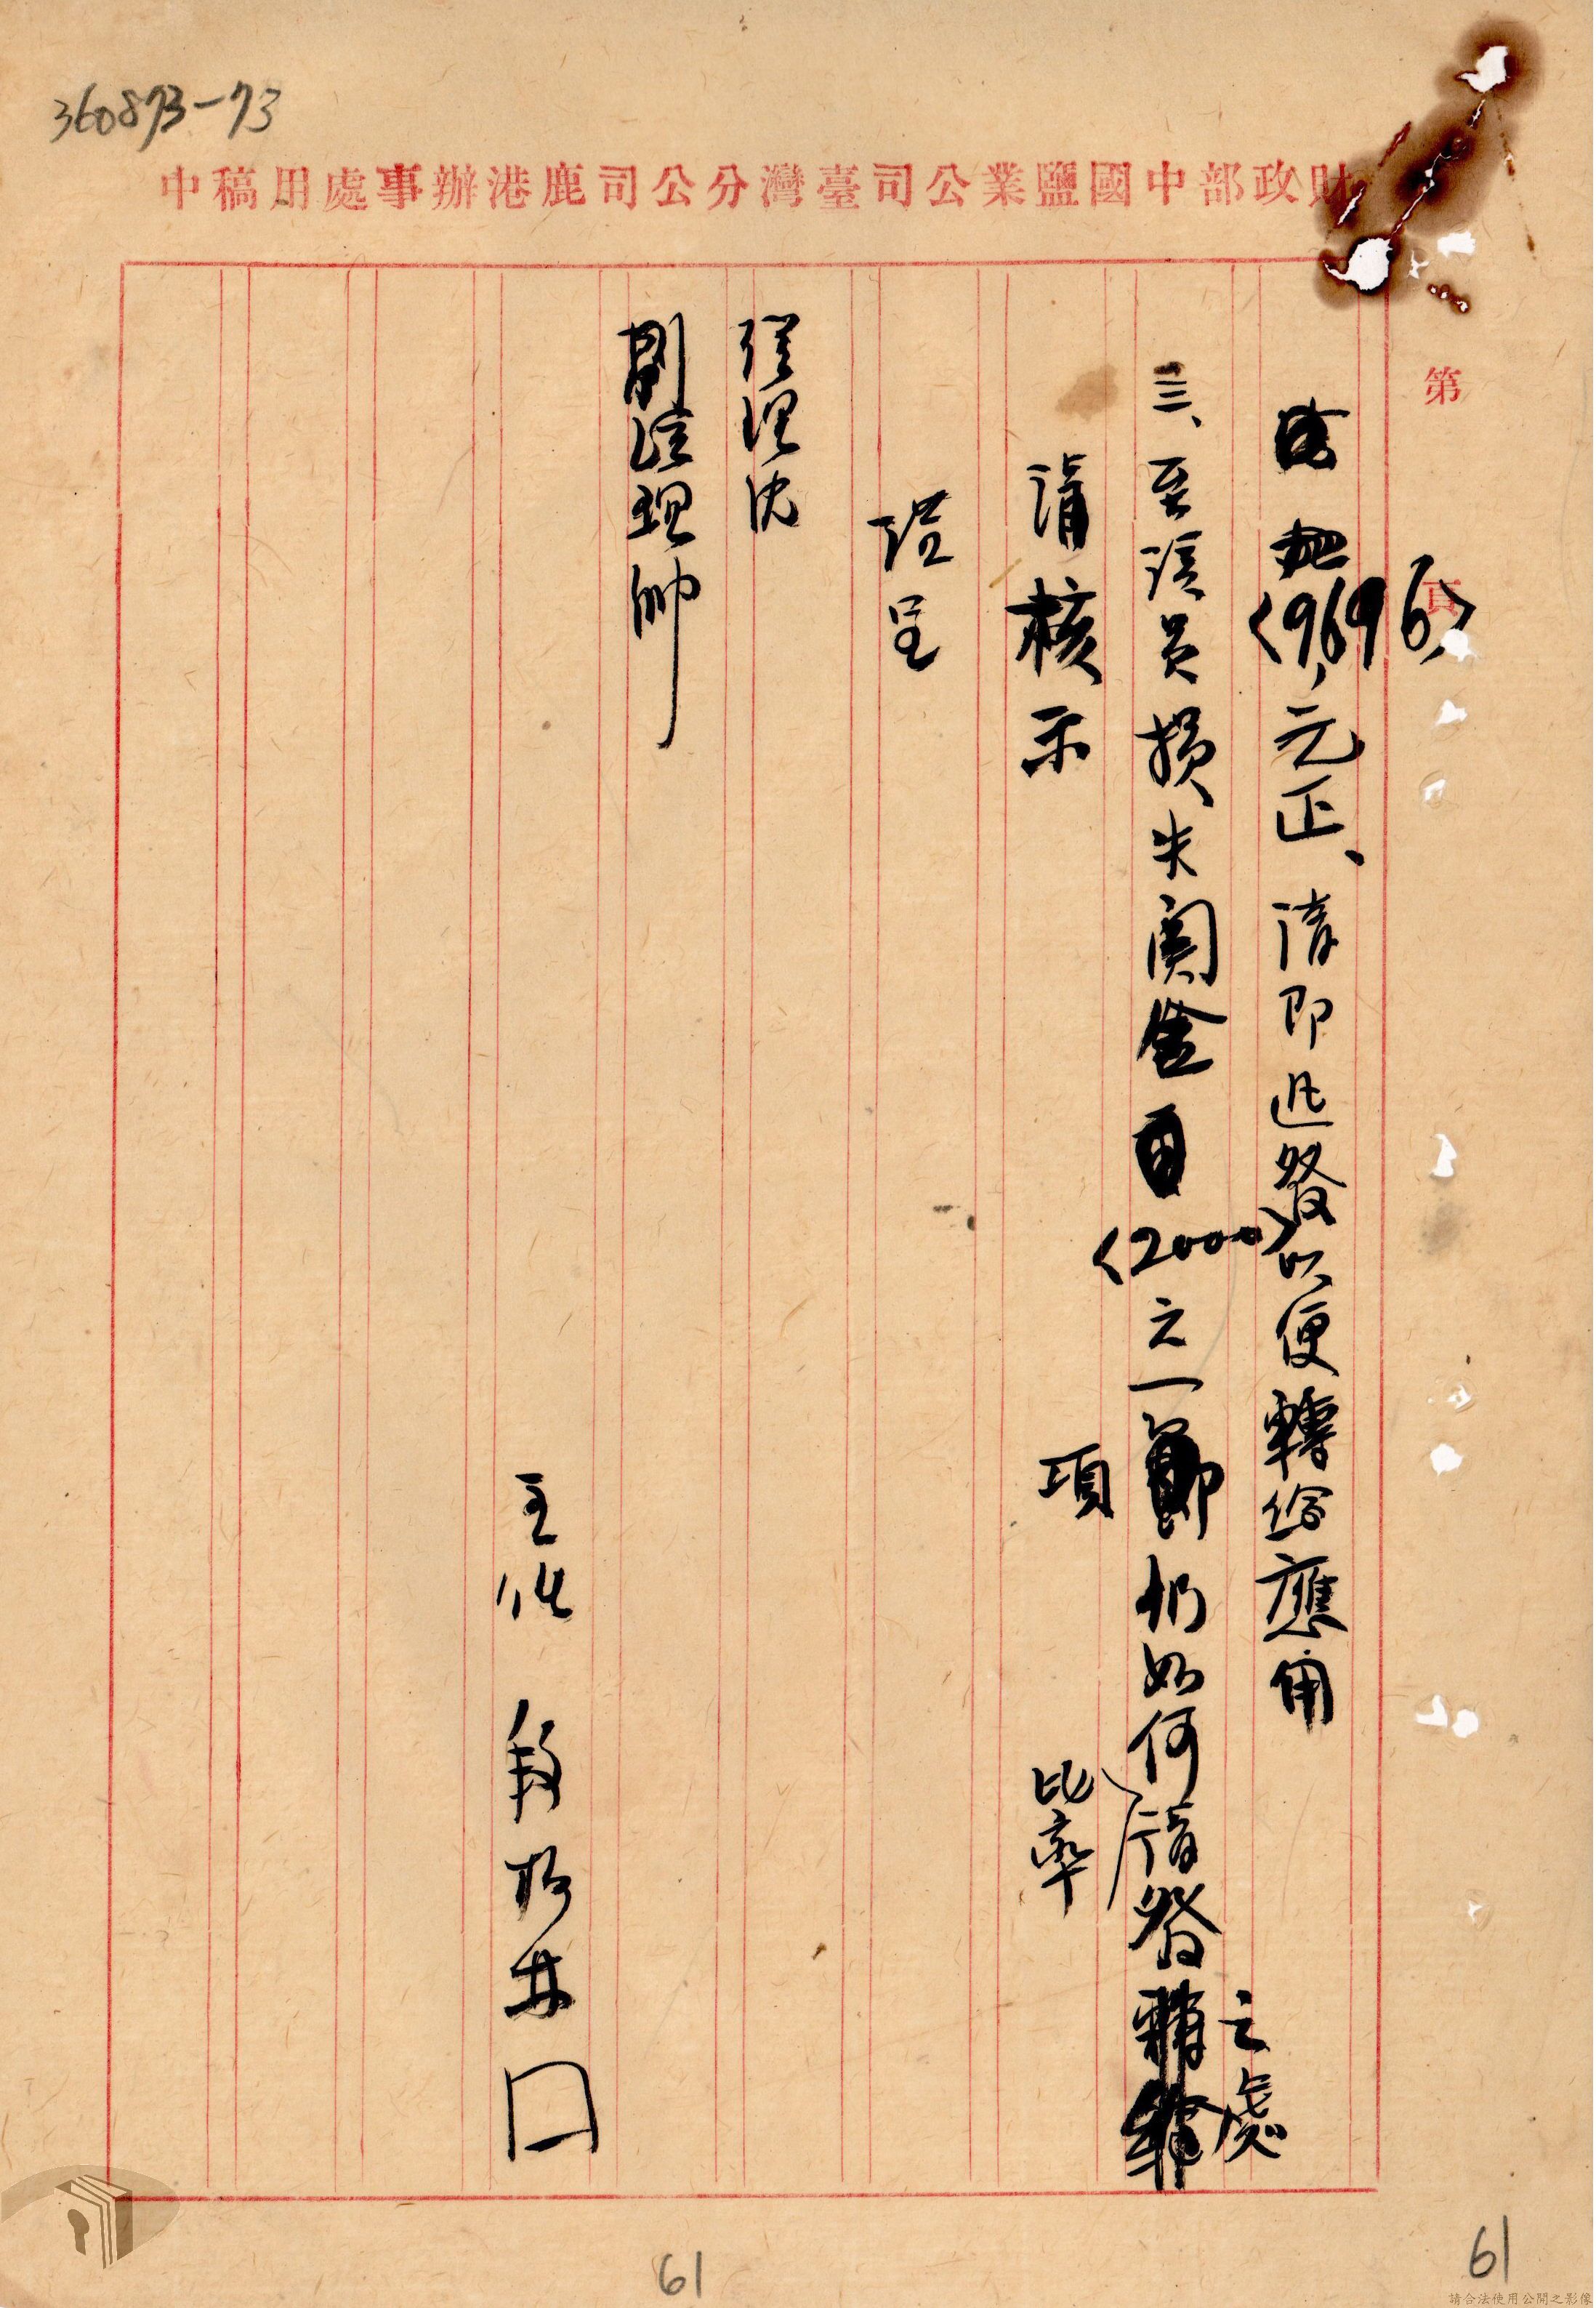 360873-73
財政部中國鹽業公司臺灣分公司鹿港辦事處用稿中
第 頁
<9,696> 元正、請即迅發以便轉給應用
三、至該員損失關金
<2000> 之一
項
仍如何
比率
請發
之處
請核示
謹呈
經理沈
副經理帥
主任 段
61
61
請合法使用公開之影像